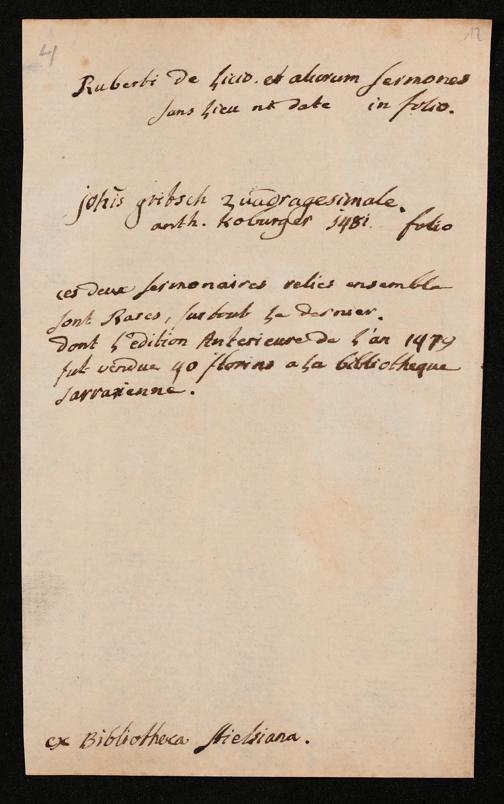 4
12
Ruberti de Licio. et aliorum sermones
sans Lieu ni date in folio.
johis gritsch quadragesimale.
anth. Koburger 1481. folio
ces deux sermonaires reliés ensemble
sont Rares, surtout Le dernier.
Dont L'edition Anterieure de L'an 1479
fut vendue 40 florins a La bibliotheque
sarrasienne.
ex Bibliotheca Stielsiana.